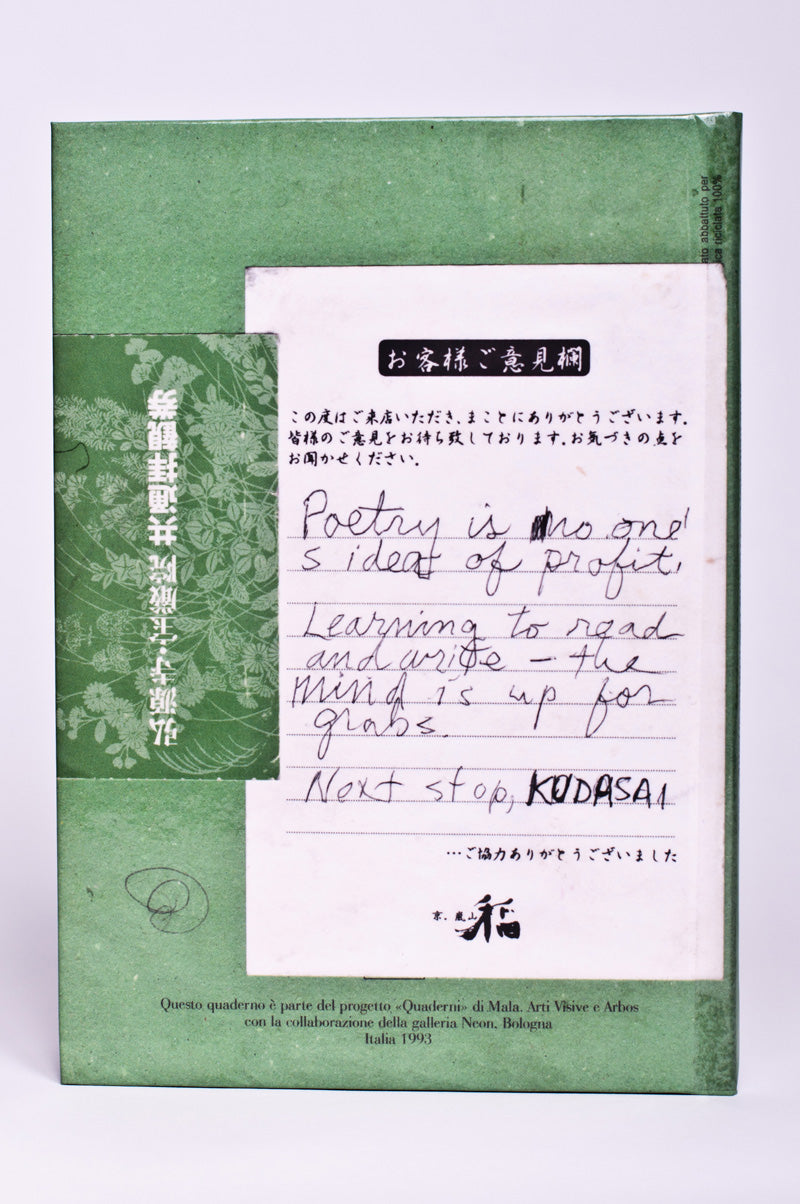 ato abbattuto per
ca riciclata 100%
お客様ご意見欄
この度はご来店いただき、まことにありがとうございます。
皆様のご意見をお待ち致しております。お気づきの点を
お聞かせください。
弘源寺・宝厳院 共通拝観券
Poetry is no one'
s idea of profit.
Learning to read
and write – the
mind is up for
grabs.
Next stop, KUDASAI
…ご協力ありがとうございました
京、嵐山 稲
Questo quaderno è parte del progetto «Quaderni» di Mala. Arti Visive e Arbos
con la collaborazione della galleria Neon. Bologna
Italia 1993